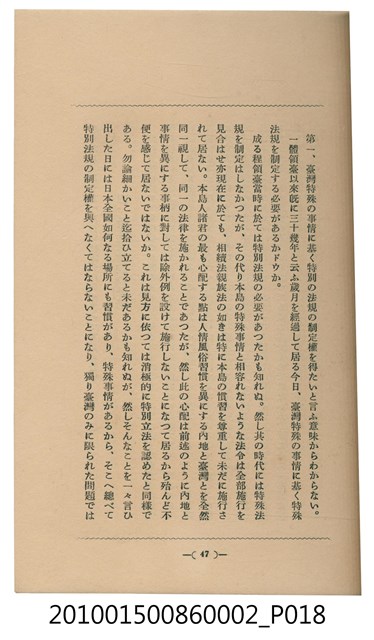 第一、臺灣特殊の事情に基く特別の法規の制定權を得たいと言ふ意味からわからない。
一體領臺以來既に三十幾年と云ふ歲月を經過して居る今日、臺灣特殊の事情に基く特殊
法規を制定する必要があるかドウか。
成る程領臺當時に於ては特別法規の必要があつたかも知れぬ。然し其の時代には特殊法
規を制定はしなかつたが、その代り本島の特殊事情と相容れないような法令は全部施行を
見合はせ亦現在に於ても、相續法親族法の如きは特に本島の慣習を尊重して未だに施行さ
れて居ない。本島人諸君の最も心配する點は人情風俗習慣を異にする內地と臺灣とを全然
同一視して、同一の法律を施かれることであつたが、然し此の心配は前述のように內地と
事情を異にする事柄に對しては除外例を設けて施行しないことになつて居るから殆んど不
便を感じて居ないではないか。これは見方に依つては消極的に特別立法を認めたと同樣で
ある。勿論細かいこと迄拾ひ立てると未だあるかも知れぬが、然しそんなことを一々言ひ
出した日には日本全國如何なる場所にも習慣があり、特殊事情があるから、そこへ總べて
特別法規の制定權を與へなくてはならないことになり、獨り臺灣のみに限られた問題では
―( 47 )―
201001500860002_P018